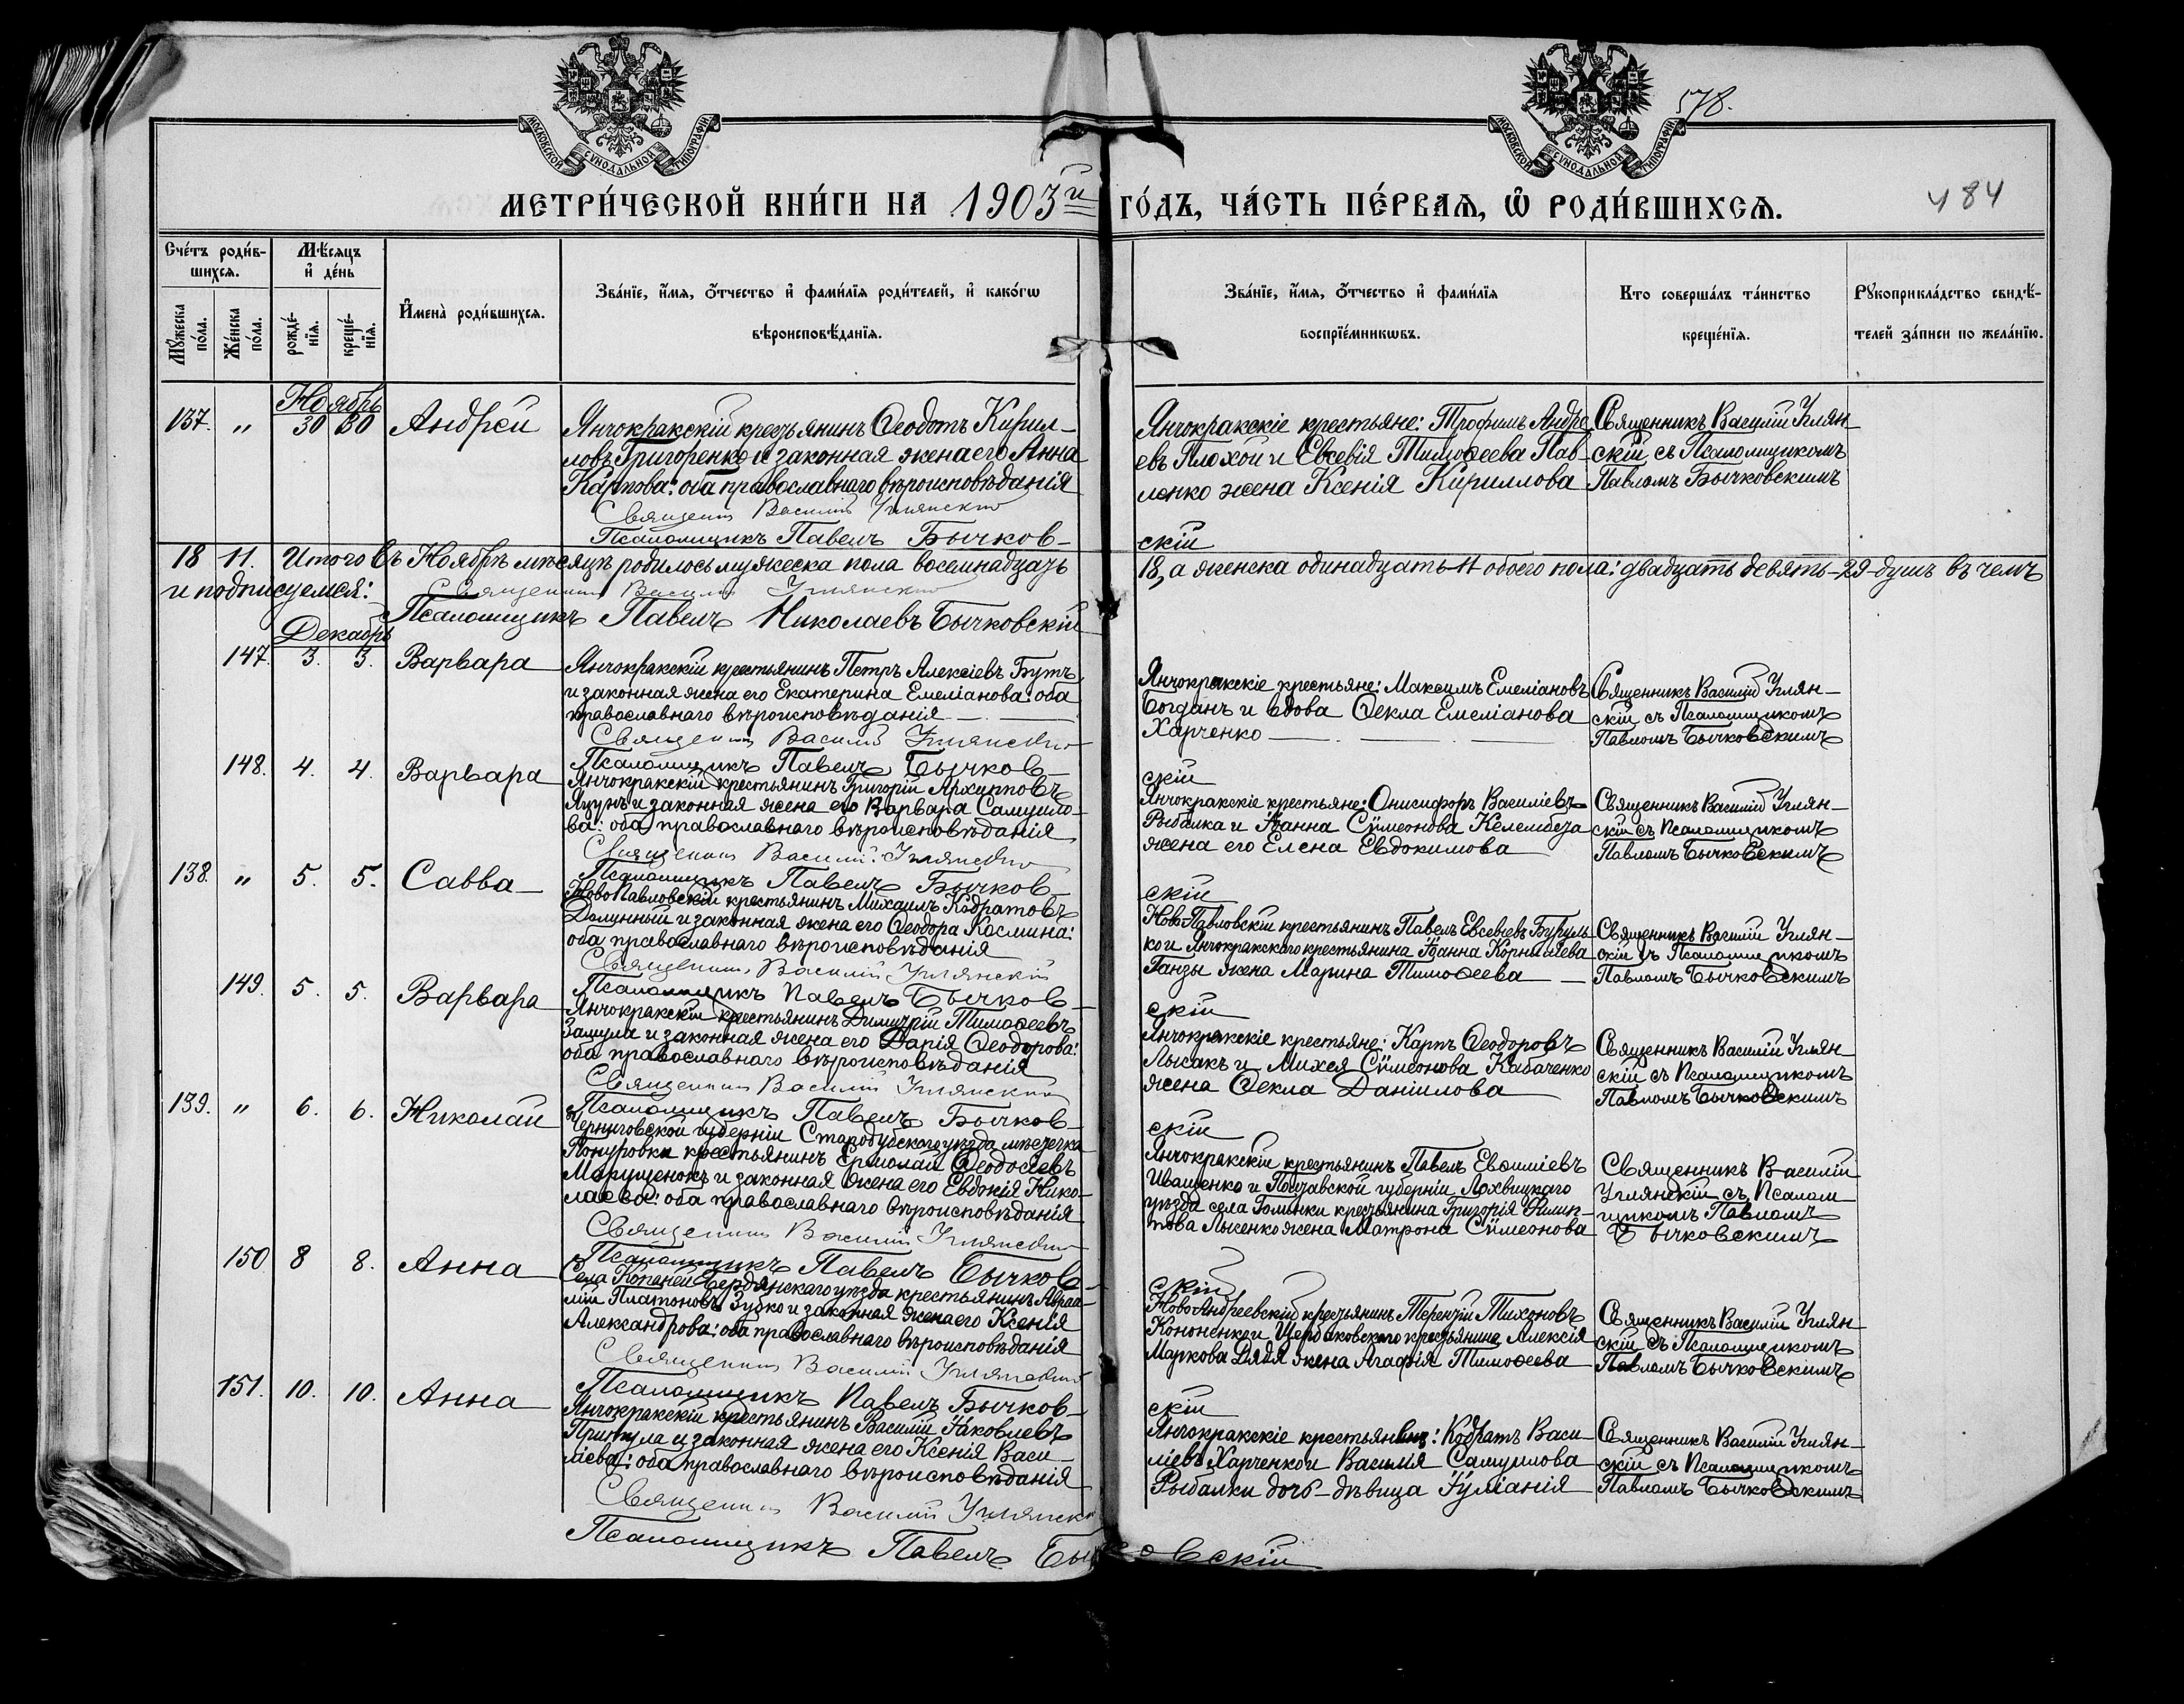 МОСКОВСКОЙ СѴНОДАЛЬНОЙ ТИПОГРАФІИ
МОСКОВСКОЙ СѴНОДАЛЬНОЙ ТИПОГРАФІИ
578.
МЕТРИ́ЧЕСКОЙ КНИ́ГИ НА 1903й ГО́ДЪ, ЧА́СТЬ ПЕ́РВАЯ, Ѽ РОДИ́ВШИХСЯ.
484
Сче́тъ роди́в-
шихся.
Мѣ́сяцъ
и҆ де́нь
Му́жеска
по́ла.
Же́нска
по́ла.
рожде́-
нїя.
креще́-
нїя.
И҆мена̀ роди́вшихся.
Зва́нїе, и҆́мя, о҆́тчество и҆ фами́лїя роди́телей, и҆ како́гѡ
вѣроисповѣ́данїя.
Зва́нїе, и҆́мя, о҆́тчество и҆ фами́лїя
воспрїе́мникѡвъ.
Кто соверша́лъ та́инство
креще́нїя.
Рꙋкоприкла́дство свидѣ́-
телей за́писи по жела́нїю.
Ноябрь
137. " 30 30 Андрей
Янчокракскій крестьянинъ Ѳеодотъ Кирил-
ловъ Григоренко и законная жена его Анна
Карпова: оба православнаго вѣроисповѣданія
Священникъ Василій Углянскій
Псаломщикъ Павелъ Бычков-
скій
Янчокракскіе крестьяне: Трофимъ Андре
евъ Плохой и Евсевія Тимоѳеева Пав-
ленко жена Ксенія Кириллова
Священникъ Василій Углян-
скій съ Псаломщикомъ
Павломъ Бычковскимъ
18 11. Итого въ Ноябрѣ мѣсяцѣ родилось мужеска пола восемнадцать 18, а женска одинадцать-11 обоего пола: двадцать девять-29-душъ въ чемъ
и подписуемся: Священникъ Василій Углянскій
Псаломщикъ Павелъ Николаевъ Бычковскій
Декабрь
147. 3. 3. Варвара
Янчокракскій крестьянинъ Петръ Алексіевъ Бутъ
и законная жена его Екатерина Емеліанова: оба
православнаго вѣроисповѣданія
Священникъ Василій Углянскій
Псаломщикъ Павелъ Бычков-
скій
Янчокракскіе крестьяне: Максимъ Емеліановъ
Богданъ и вдова Ѳекла Емеліанова
Харченко
Священникъ Василій Углян-
скій съ Псаломщикомъ
Павломъ Бычковскимъ
148. 4. 4. Варвара
Янчокракскій крестьянинъ Григорій Архипповъ
Яцунъ и законная жена его Варвара Самуило-
ва: оба православнаго вѣроисповѣданія
Священникъ Василій Углянскій
Псаломщикъ Павелъ Бычков-
скій
Янчокракскіе крестьяне: Онисифоръ Василіевъ
Рыбалка и Іоанна Сѵмеонова Келембета
жена его Елена Евдокимова
Священникъ Василій Углян-
скій съ Псаломщикомъ
Павломъ Бычковскимъ
138. " 5. 5. Савва
Ново-Павловскій крестьянинъ Михаилъ Кодратовъ
Долинный и законная жена его Ѳеодора Космина:
оба православнаго вѣроисповѣданія
Священникъ Василій Углянскій
Псаломщикъ Павелъ Бычков-
скій
Ново-Павловскій крестьянинъ Павелъ Евсевіевъ Буруль-
ко и Янчокракскаго крестьянина Іоанна Корниліева
Ганзы жена Марина Тимоѳеева
Священникъ Василій Углян-
скій съ Псаломщикомъ
Павломъ Бычковскимъ
149. 5. 5. Варвара
Янчокракскій крестьянинъ Димитрій Тимоѳеевъ
Замула и законная жена его Дарія Ѳеодорова:
оба православнаго вѣроисповѣданія
Священникъ Василій Углянскій
Псаломщикъ Павелъ Бычков-
скій
Янчокракскіе крестьяне: Карпъ Ѳеодоровъ
Лысакъ и Михея Сѵмеонова Кабаченко
жена Ѳекла Даніилова
Священникъ Василій Углян-
скій съ Псаломщикомъ
Павломъ Бычковскимъ
139. " 6. 6. Николай
Черниговской губерніи Стародубскаго уѣзда мѣстечка
Понуровки крестьянинъ Ермолай Ѳеодосіевъ
Марущенокъ и законная жена его Евдокія Нико-
лаева: оба православнаго вѣроисповѣданія
Священникъ Василій Углянскій
Псаломщикъ Павелъ Бычков-
скій
Янчокракскій крестьянинъ Павелъ Евѳиміевъ
Иващенко и Полтавской губерніи Лохвицкаго
уѣзда села Голинки крестьянина Григорія Филип-
пова Лысенко жена Матрона Сѵмеонова
Священникъ Василій
Углянскій съ Псалом-
щикомъ Павломъ
Бычковскимъ
150 8 8. Анна
Села Копаней Бердянскаго уѣзда крестьянинъ Авраа-
мій Платоновъ Зубко и законная жена его Ксенія
Александрова: оба православнаго вѣроисповѣданія
Священникъ Василій Углянскій
Псаломщикъ Павелъ Бычков-
скій
Ново-Андреевскій крестьянинъ Терентій Тихоновъ
Кононенко и Щербаковскаго крестьянина Алексія
Маркова Дядя жена Агафія Тимоѳеева
Священникъ Василій Углян-
скій съ Псаломщикомъ
Павломъ Бычковскимъ
151. 10. 10. Анна
Янчокракскій крестьянинъ Василій Іаковлевъ
Притула и законная жена его Ксенія Васи-
ліева: оба православнаго вѣроисповѣданія
Священникъ Василій Углянскій
Псаломщикъ Павелъ Бычковскій
Янчокракскіе крестьянинъ: Кодратъ Васи-
ліевъ Харченко и Василія Самуилова
Рыбалки дочь-дѣвица Іуліанія
Священникъ Василій Углян-
скій съ Псаломщикомъ
Павломъ Бычковскимъ